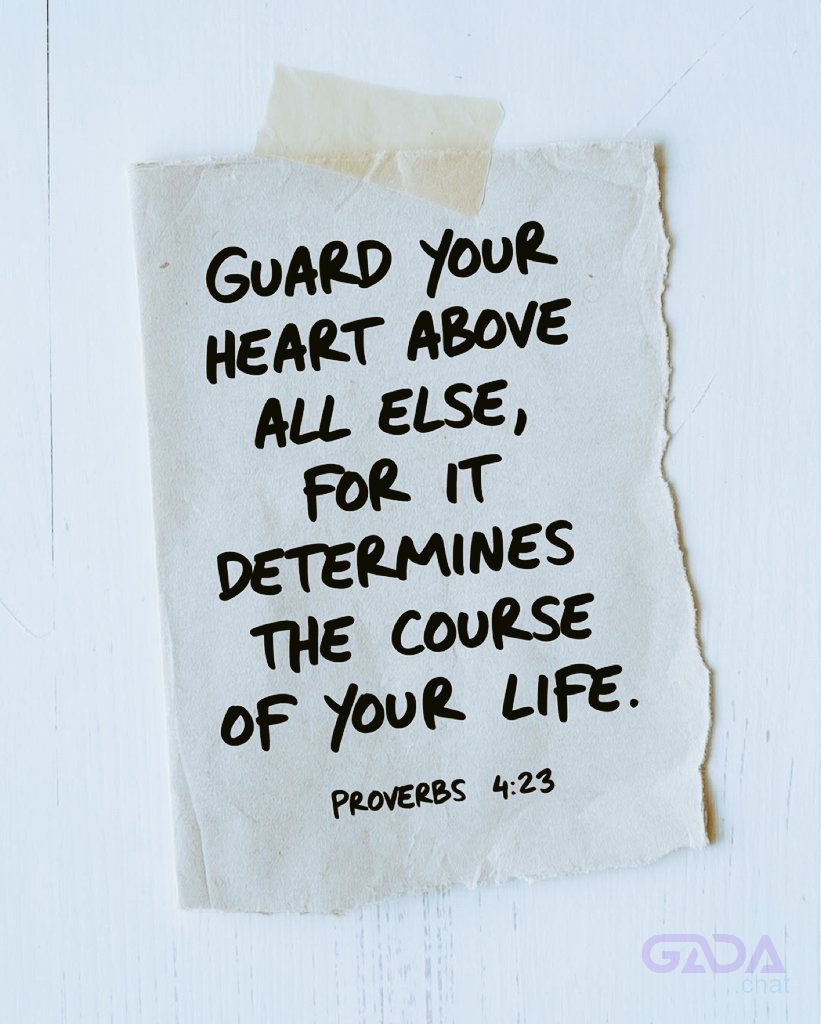 GUARD YOUR
HEART ABOVE
ALL ELSE,
FOR IT
DETERMINES
THE COURSE
OF YOUR LIFE.
PROVERBS 4:23
GADA
.chat